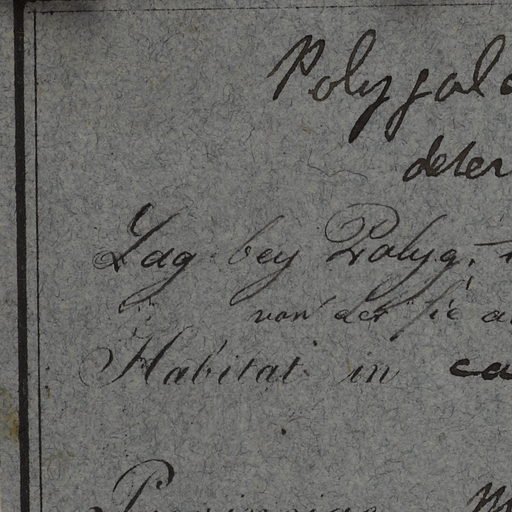 Polygala
deter
Lag bey Polyg.
von der sie a
Habitat in ca